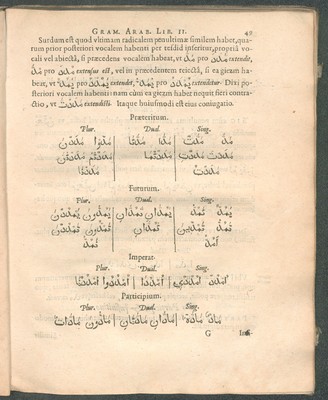 GRAM. ARAB. LIB. II. 49
Surdum est quod vltimam radicalem penultimæ similem habet, quarum prior posteriori vocalem habenti per tesdid inseritur, propria vocali vel abiecta, si præcedens vocalem habeat, vt مَدَّ pro مَدَدَ extendit,
مُدَّ pro مُدِدَ extensus est, vel in præcedentem reiecta, si ea giezm habeat, vt يَمُدُّ pro يَمْدُدُ extendet, يُمَدُّ pro يُمْدَدُ extendetur. Dixi posteriori vocalem habenti: nam cùm ea giezm habet nequit fieri contractio, vt مَدَدْتَ extendisti. Itaque huiusmodi est eius coniugatio.
Præteritum.
Plur. Dual. Sing.
مَدُّوا مَدَدْنَ مَدَّا مَدَّتَا مَدَّ مَدَّتْ
مَدَدْتُمْ مَدَدْتُنَّ مَدَدْتُمَا مَدَدْتَ مَدَدْتِ
مَدَدْنَا مَدَدْتُ
Futurum.
Plur. Dual. Sing.
يَمُدُّونَ يَمْدُدْنَ يَمُدَّانِ تَمُدَّانِ يَمُدُّ تَمُدُّ
تَمُدُّونَ تَمْدُدْنَ تَمُدَّانِ تَمُدُّ تَمُدِّينَ
نَمُدُّ أَمُدُّ
Imperat.
Plur. Dual. Sing.
Participium.
Plur. Dual. Sing.
مَادُّونَ مَادَّاتٌ مَادَّانِ مَادَّتَانِ مَادٌّ مَادَّةٌ
G